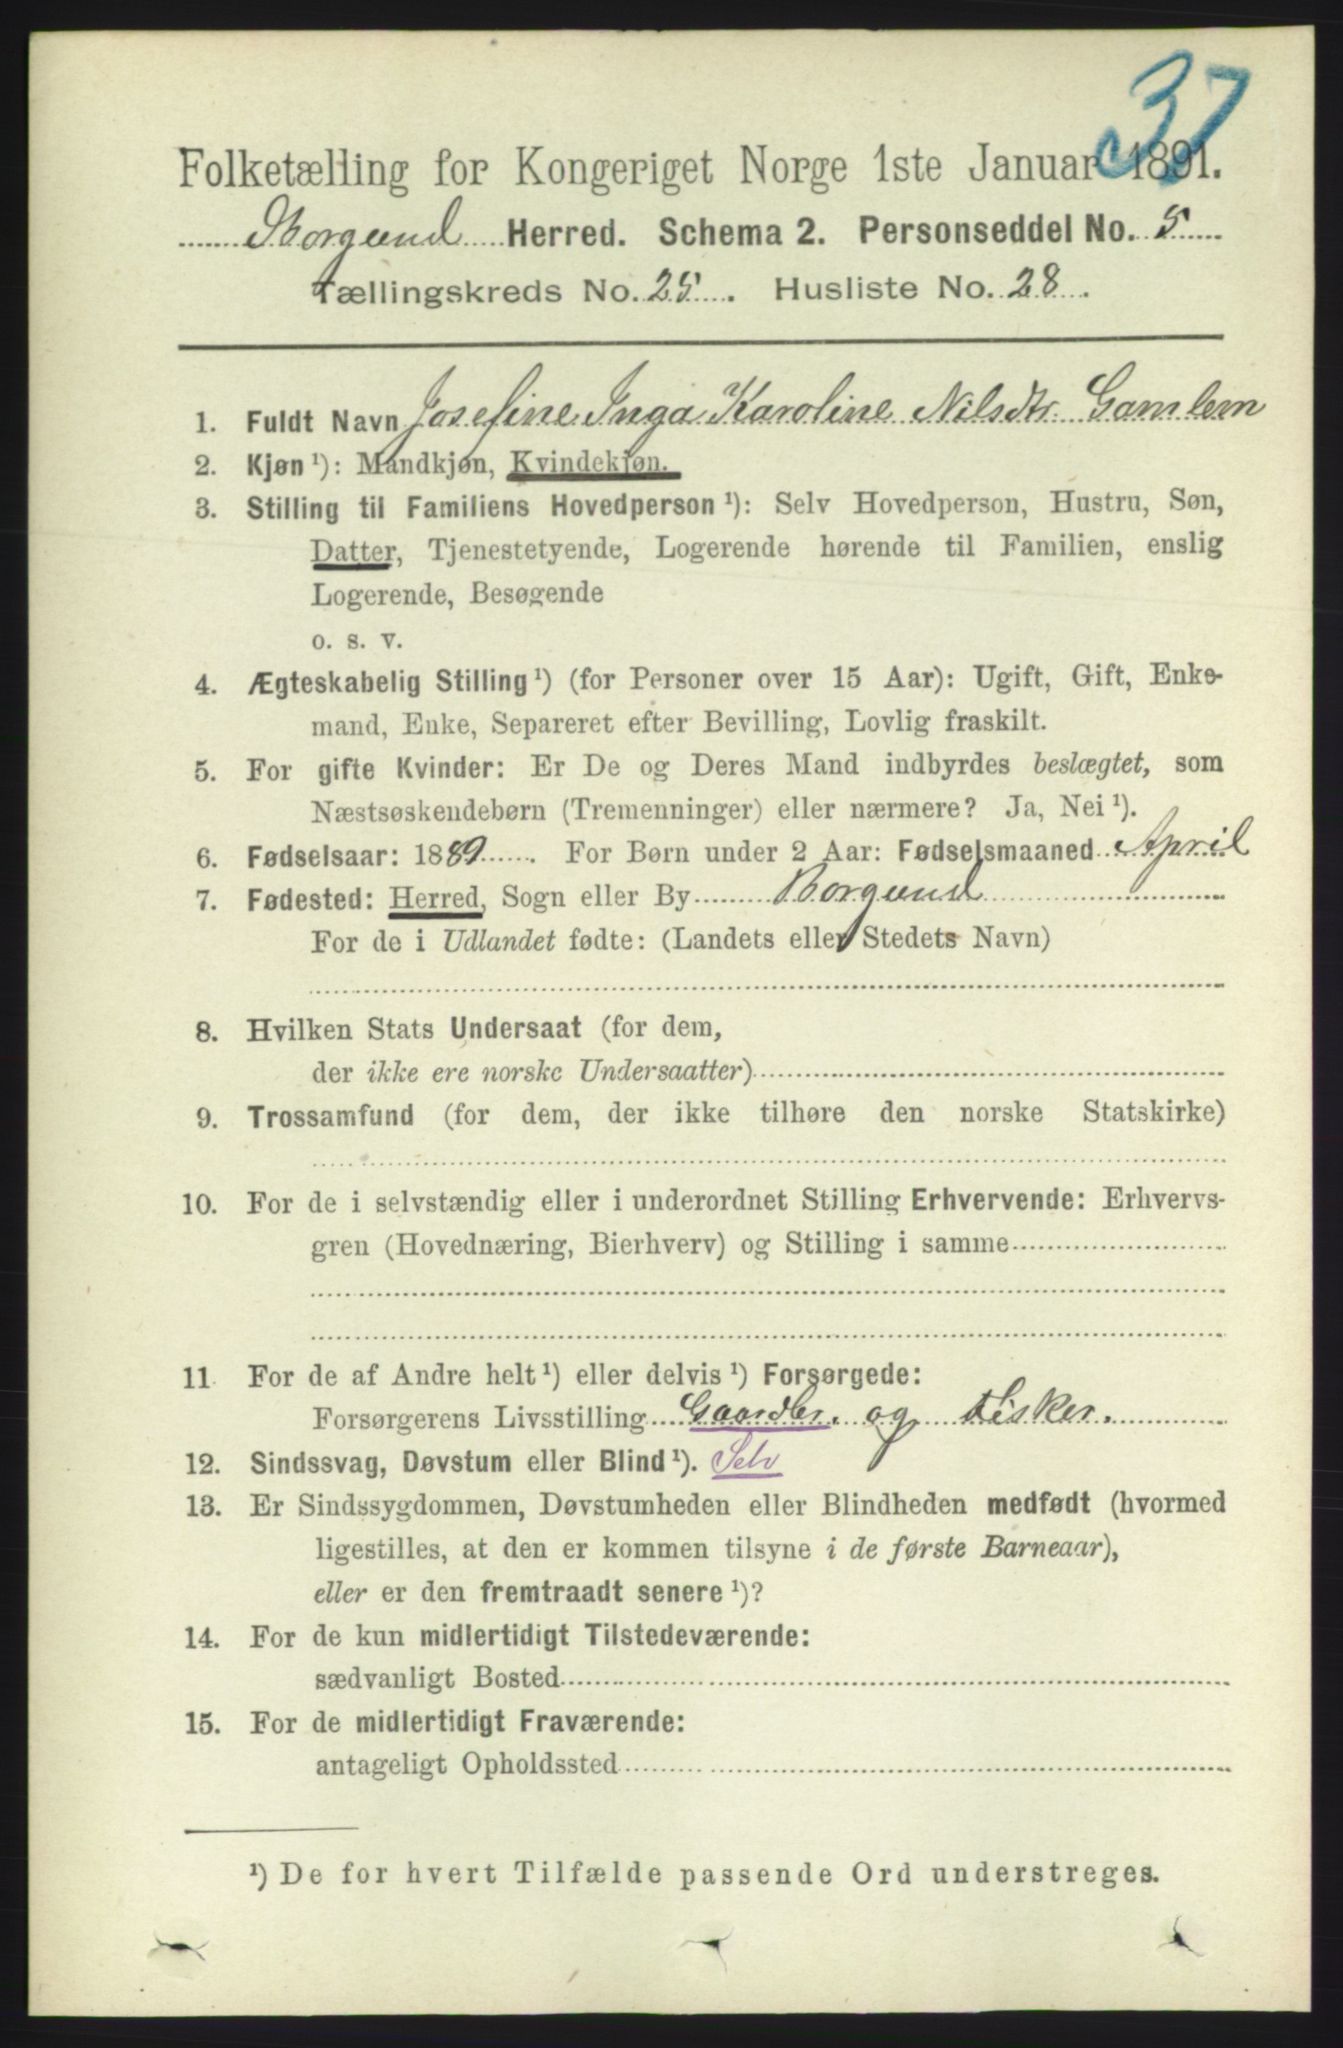 37
Folketælling for Kongeriget Norge 1ste Januar 1891.
Borgund Herred. Schema 2. Personseddel No. 5
Tællingskreds No. 25. Husliste No. 28.
1. Fuldt Navn Josefine Inga Karoline Nilsdtr. Gamlem
2. Kjøn ¹): Mandkjøn, Kvindekjøn.
3. Stilling til Familiens Hovedperson ¹): Selv Hovedperson, Hustru, Søn,
Datter, Tjenestetyende, Logerende hørende til Familien, enslig
Logerende, Besøgende
o. s. v.
4. Ægteskabelig Stilling ¹) (for Personer over 15 Aar): Ugift, Gift, Enke-
mand, Enke, Separeret efter Bevilling, Lovlig fraskilt.
5. For gifte Kvinder: Er De og Deres Mand indbyrdes beslægtet, som
Næstsøskendebørn (Tremenninger) eller nærmere? Ja, Nei ¹).
6. Fødselsaar: 1889. For Børn under 2 Aar: Fødselsmaaned April
7. Fødested: Herred, Sogn eller By Borgund
For de i Udlandet fødte: (Landets eller Stedets Navn)
8. Hvilken Stats Undersaat (for dem,
der ikke ere norske Undersaatter)
9. Trossamfund (for dem, der ikke tilhøre den norske Statskirke)
10. For de i selvstændig eller i underordnet Stilling Erhvervende: Erhvervs-
gren (Hovednæring, Bierhverv) og Stilling i samme
11. For de af Andre helt ¹) eller delvis ¹) Forsørgede:
Forsørgerens Livsstilling Gaardbr. og Fisker.
12. Sindssvag, Døvstum eller Blind ¹). Selv
13. Er Sindssygdommen, Døvstumheden eller Blindheden medfødt (hvormed
ligestilles, at den er kommen tilsyne i de første Barneaar),
eller er den fremtraadt senere ¹)?
14. For de kun midlertidigt Tilstedeværende:
sædvanligt Bosted
15. For de midlertidigt Fraværende:
antageligt Opholdssted
¹) De for hvert Tilfælde passende Ord understreges.